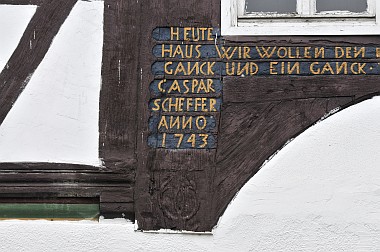 HEUTE
HAUS
GANCK
CASPAR
SCHEFFER
ANNO
1743
WIR WOLLEN DEN
UND EIN GANCK.